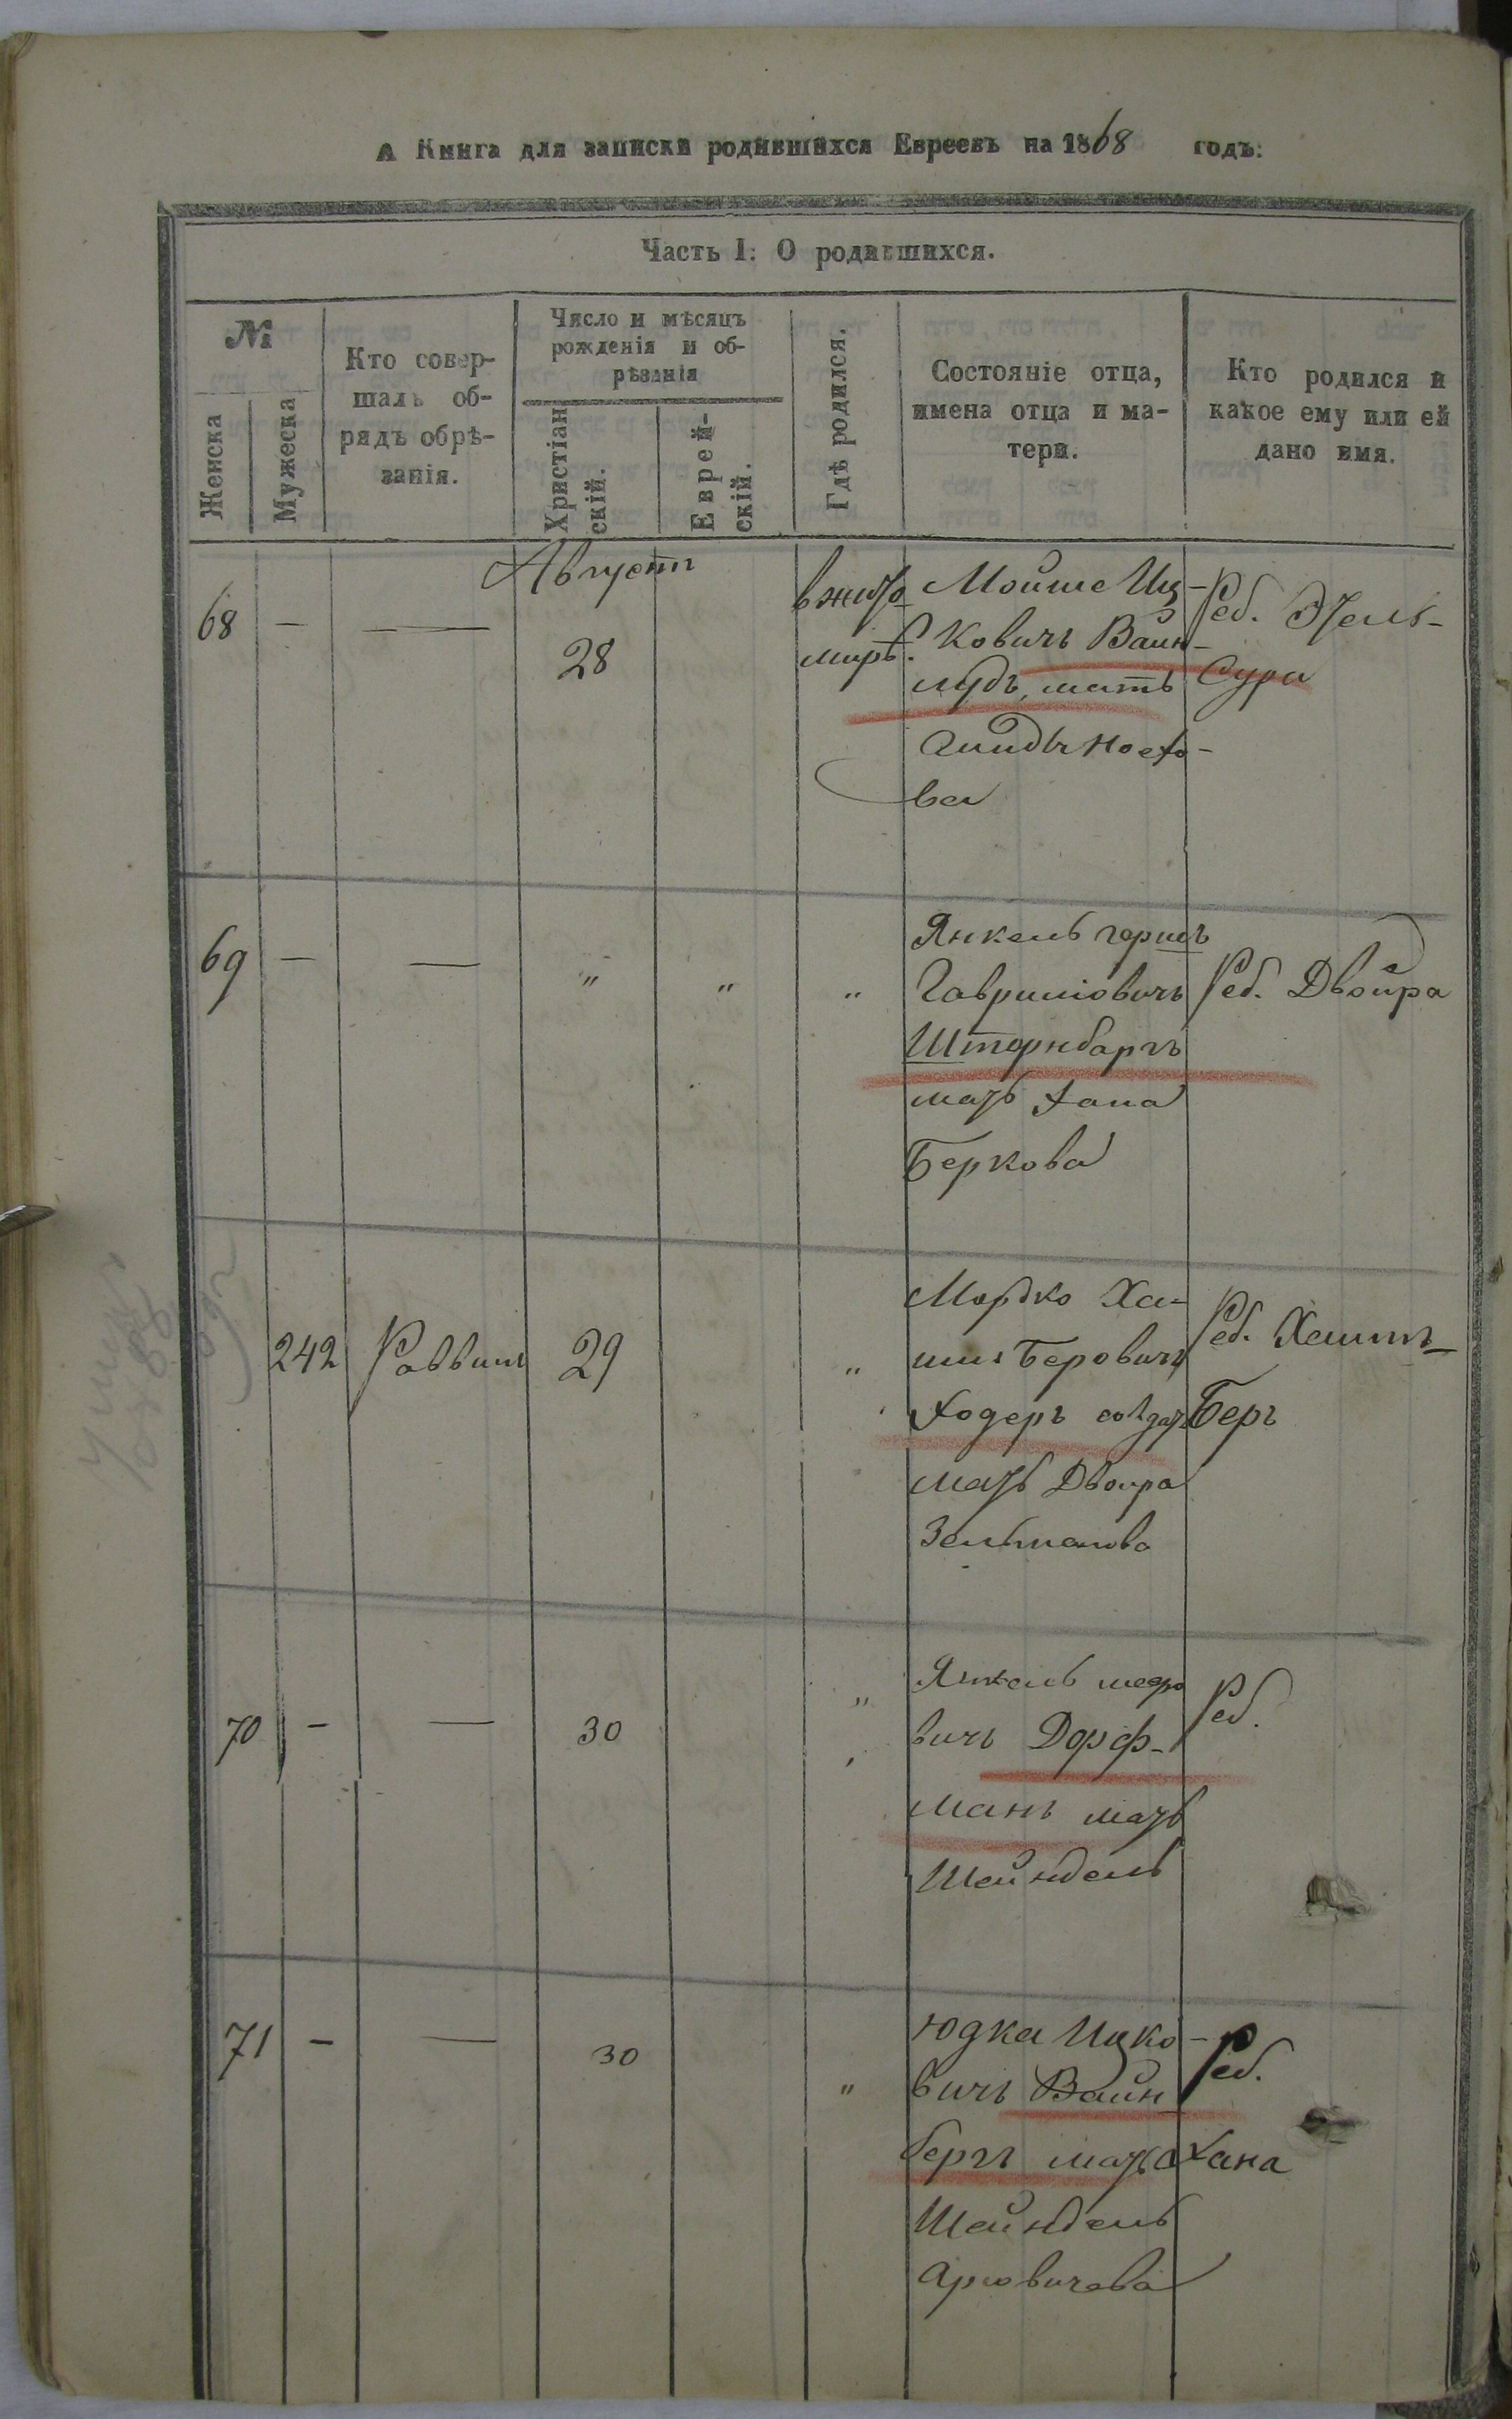 А Книга для записки родившихся Евреевъ на 1868 годъ:
Часть I: О родившихся.
№
Женска
Мужеска
Кто совер-
шалъ об-
рядъ обрѣ-
занія.
Число и мѣсяцъ
рожденія и об-
рѣзанія
Христіан
скій.
Еврей-
скій.
Гдѣ родился.
Состояніе отца,
имена отца и ма-
тери.
Кто родился и
какое ему или ей
дано имя.
Августъ
68 — — 28
в жито
миръ.
Мойше Иц-
ковичъ Вайн-
лудъ, мать
ва
Реб. Этель-
Сура
69 — — " " "
Янкель герш
Гавриловичъ
Штернбаргъ
мать Хана
Беркова
Реб. Двойра
242 Раввинъ 29 "
Мордко Ха-
имъ Беровичъ
Ходеръ солдат
мать Двойра
Зельманова
Реб. Хаимъ-
Беръ
70 — — 30 "
Янкель
вичъ Дорф-
манъ мать
Шейндель
Реб.
71 — — 30 "
Юдка Ицко-
вичъ Вайн
бергъ мать
Шейндель
Арьовичева
Реб.
Хана